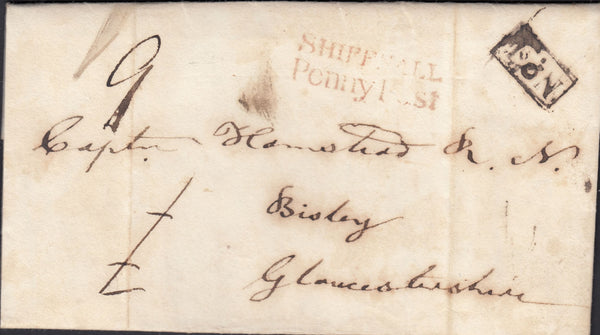 SHIFFNALL
Penny Post
No. 2
9
Captn Hamstead R. N.
Bisley
Gloucestershire